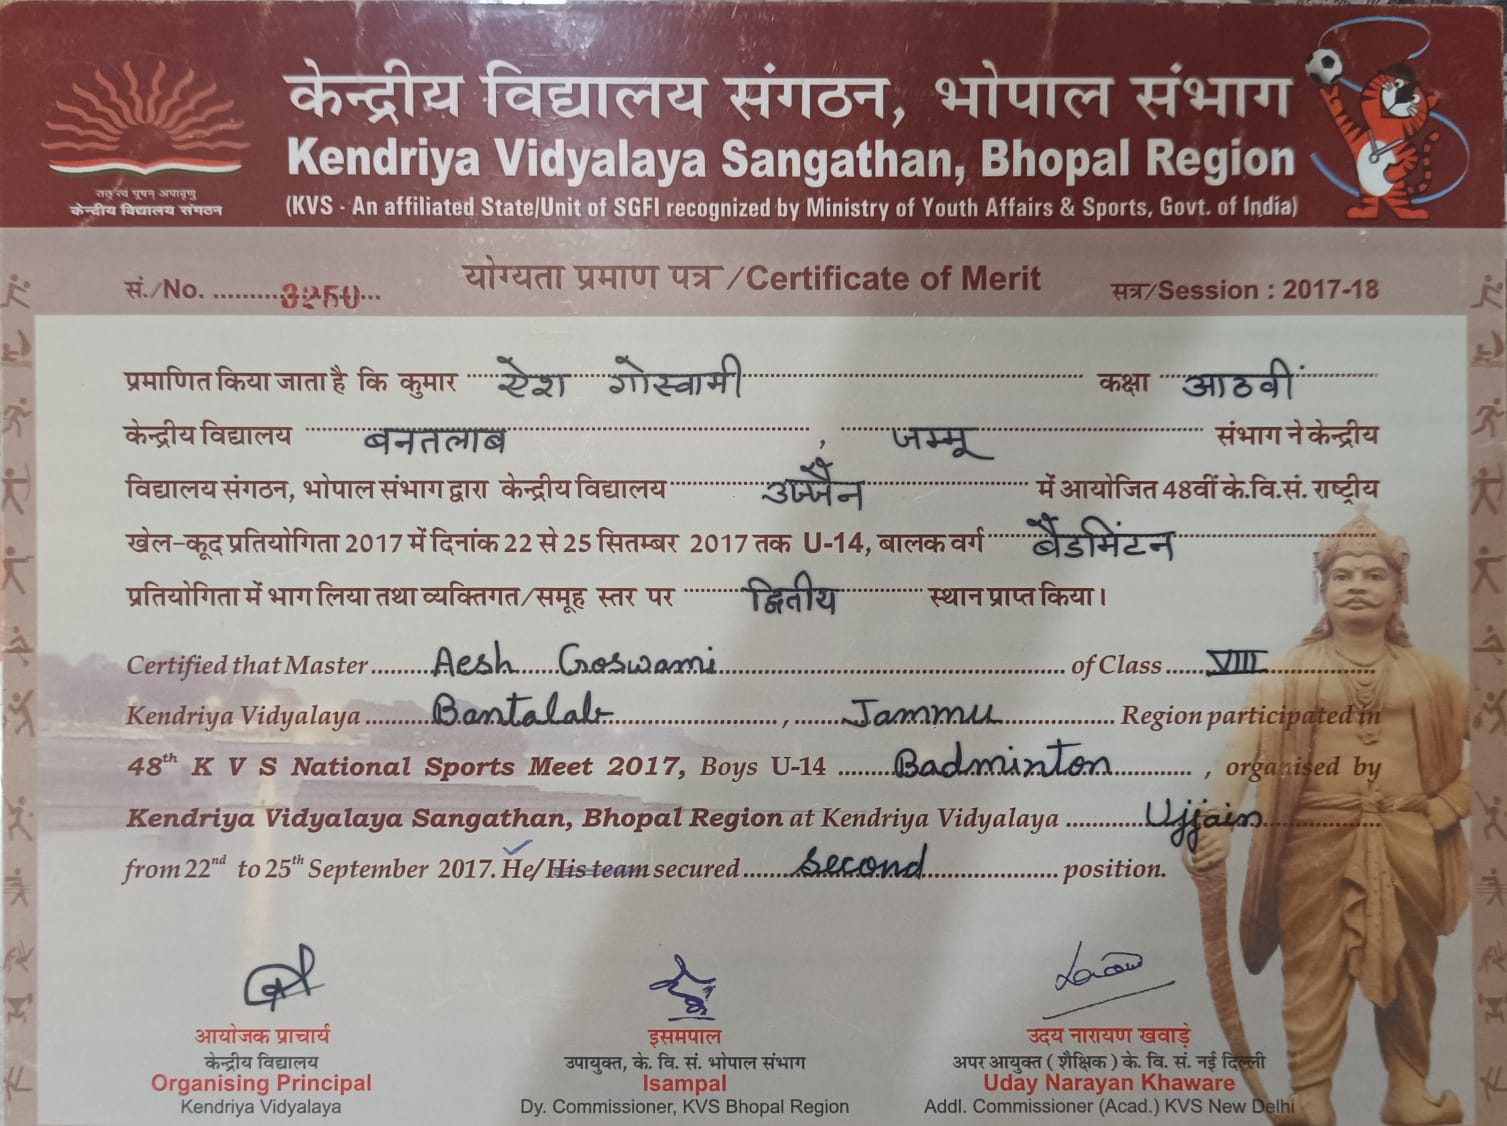 केन्द्रीय विद्यालय संगठन, भोपाल संभाग
Kendriya Vidyalaya Sangathan, Bhopal Region
(KVS - An affiliated State/Unit of SGFI recognized by Ministry of Youth Affairs & Sports, Govt. of India)
तत् त्वं पूषन् अपावृणु
केन्द्रीय विद्यालय संगठन
योग्यता प्रमाण पत्र /Certificate of Merit
सं./No. ..........3250...
सत्र/Session : 2017-18
प्रमाणित किया जाता है कि कुमार ऐश गोस्वामी कक्षा आठवीं
केन्द्रीय विद्यालय बनतलाब , जम्मू संभाग ने केन्द्रीय
विद्यालय संगठन, भोपाल संभाग द्वारा केन्द्रीय विद्यालय उज्जैन में आयोजित 48वीं के.वि.सं. राष्ट्रीय
खेल-कूद प्रतियोगिता 2017 में दिनांक 22 से 25 सितम्बर 2017 तक U-14, बालक वर्ग बैडमिंटन
प्रतियोगिता में भाग लिया तथा व्यक्तिगत/समूह स्तर पर द्वितीय स्थान प्राप्त किया।
Certified that Master Aesh Goswami of Class VIII
Kendriya Vidyalaya Bantalab , Jammu Region participated in
48th K V S National Sports Meet 2017, Boys U-14 Badminton , organised by
Kendriya Vidyalaya Sangathan, Bhopal Region at Kendriya Vidyalaya Ujjain
from 22nd to 25th September 2017. He/ His team secured second position.
आयोजक प्राचार्य
केन्द्रीय विद्यालय
Organising Principal
Kendriya Vidyalaya
इसमपाल
उपायुक्त, के. वि. सं. भोपाल संभाग
Isampal
Dy. Commissioner, KVS Bhopal Region
उदय नारायण खवाड़े
अपर आयुक्त ( शैक्षिक ) के. वि. सं. नई दिल्ली
Uday Narayan Khaware
Addl. Commissioner (Acad.) KVS New Delhi